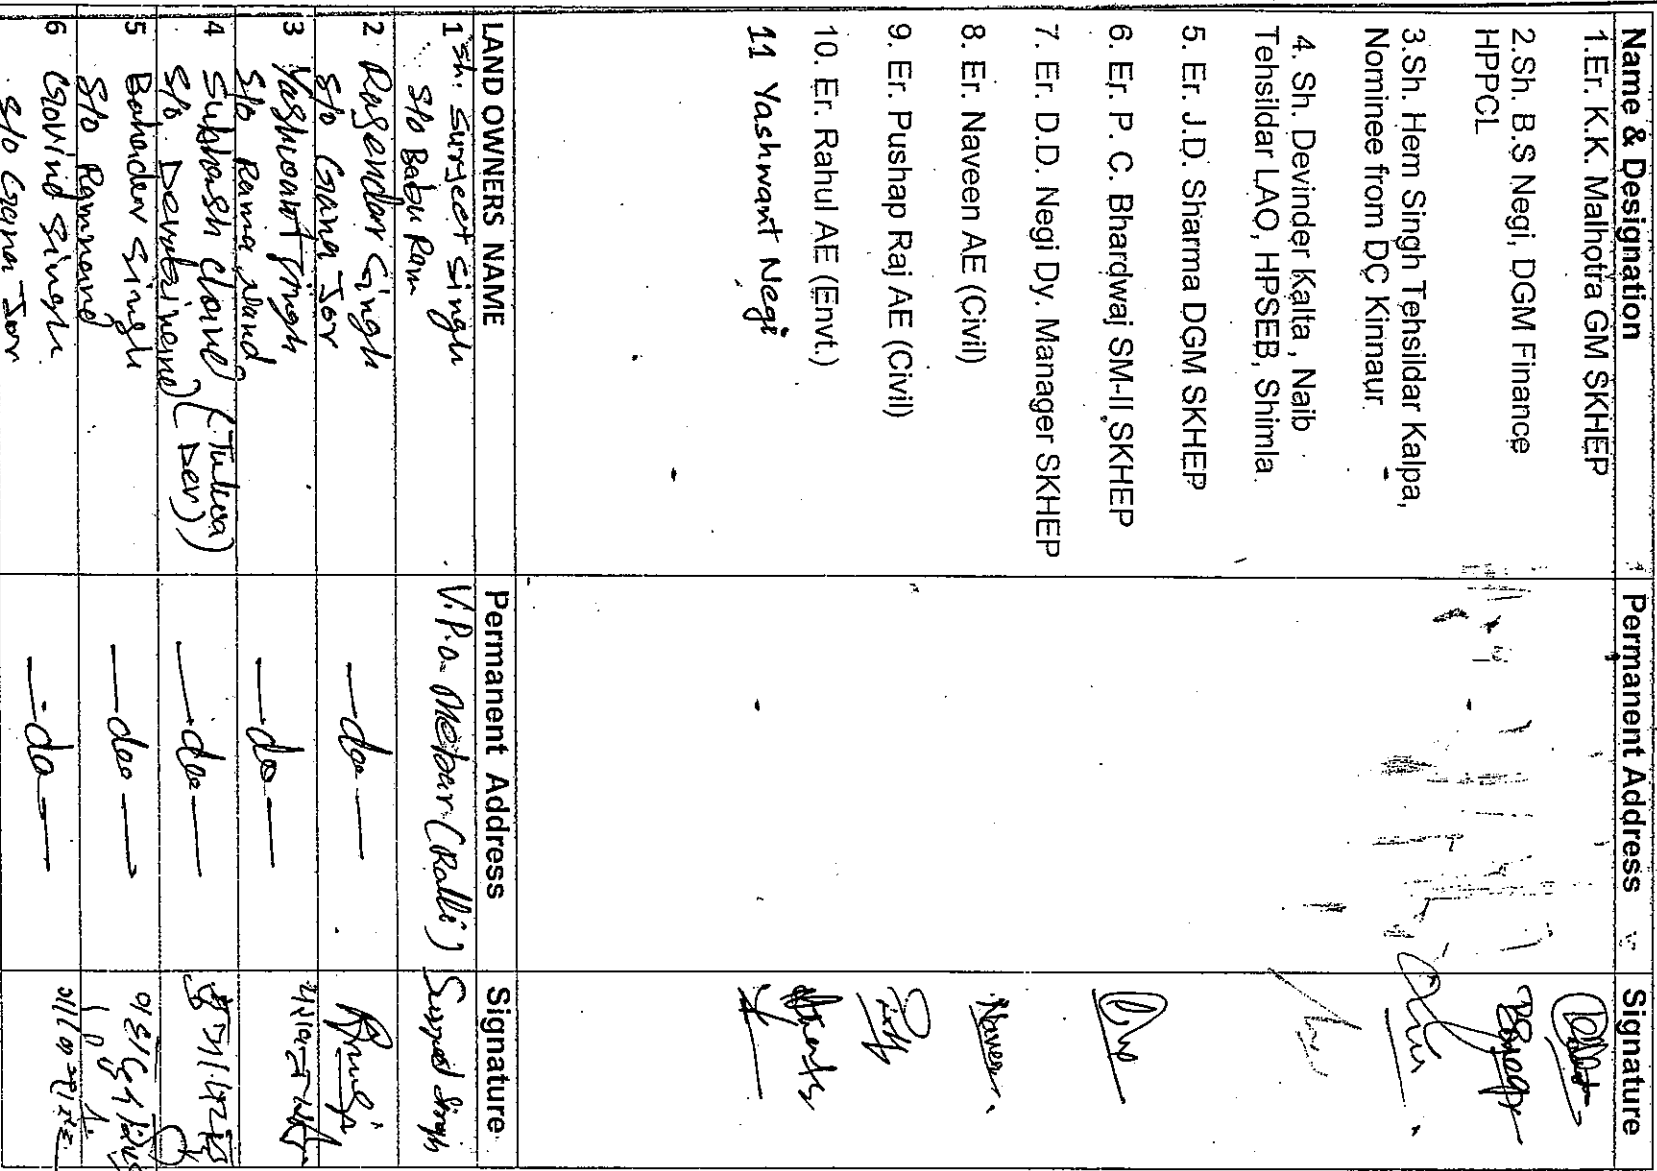 Name & Designation Permanent Address Signature
1.Er. K.K. Mahotra GM SKHEP
2.Sh. B.S Negi, DGM Finance
HPPCL
3.Sh. Hem Singh Tehsildar Kalpa,
Nominee from DC Kinnaur
4. Sh. Devinder Kalta , Naib
Tehsildar LAO, HPSEB, Shimla.
5. Er. J.D. Sharma DGM SKHEP
6. Er. P. C. Bhardwaj SM-II SKHEP
7. Er. D.D. Negi Dy. Manager SKHEP
8. Er. Naveen AE (Civil)
Naveen
9. Er. Pushap Raj AE (Civil)
10. Er. Rahul AE (Envt.)
11 Yashwant Negi
LAND OWNERS NAME Permanent Address Signature
1 Sh. Surjeet Singh V.P.O. Mebar (Ralli) Surjeet Singh
S/o Babu Ram
2 Rajender Singh —do—
S/o Ganga Jor
3 Yashwant Singh —do—
S/o Rama Nand
4 Subhash Chand —do—
S/o
5 Bahader Singh —do—
S/o Ramnand
6 Govind Singh —do—
S/o Ganga Jor